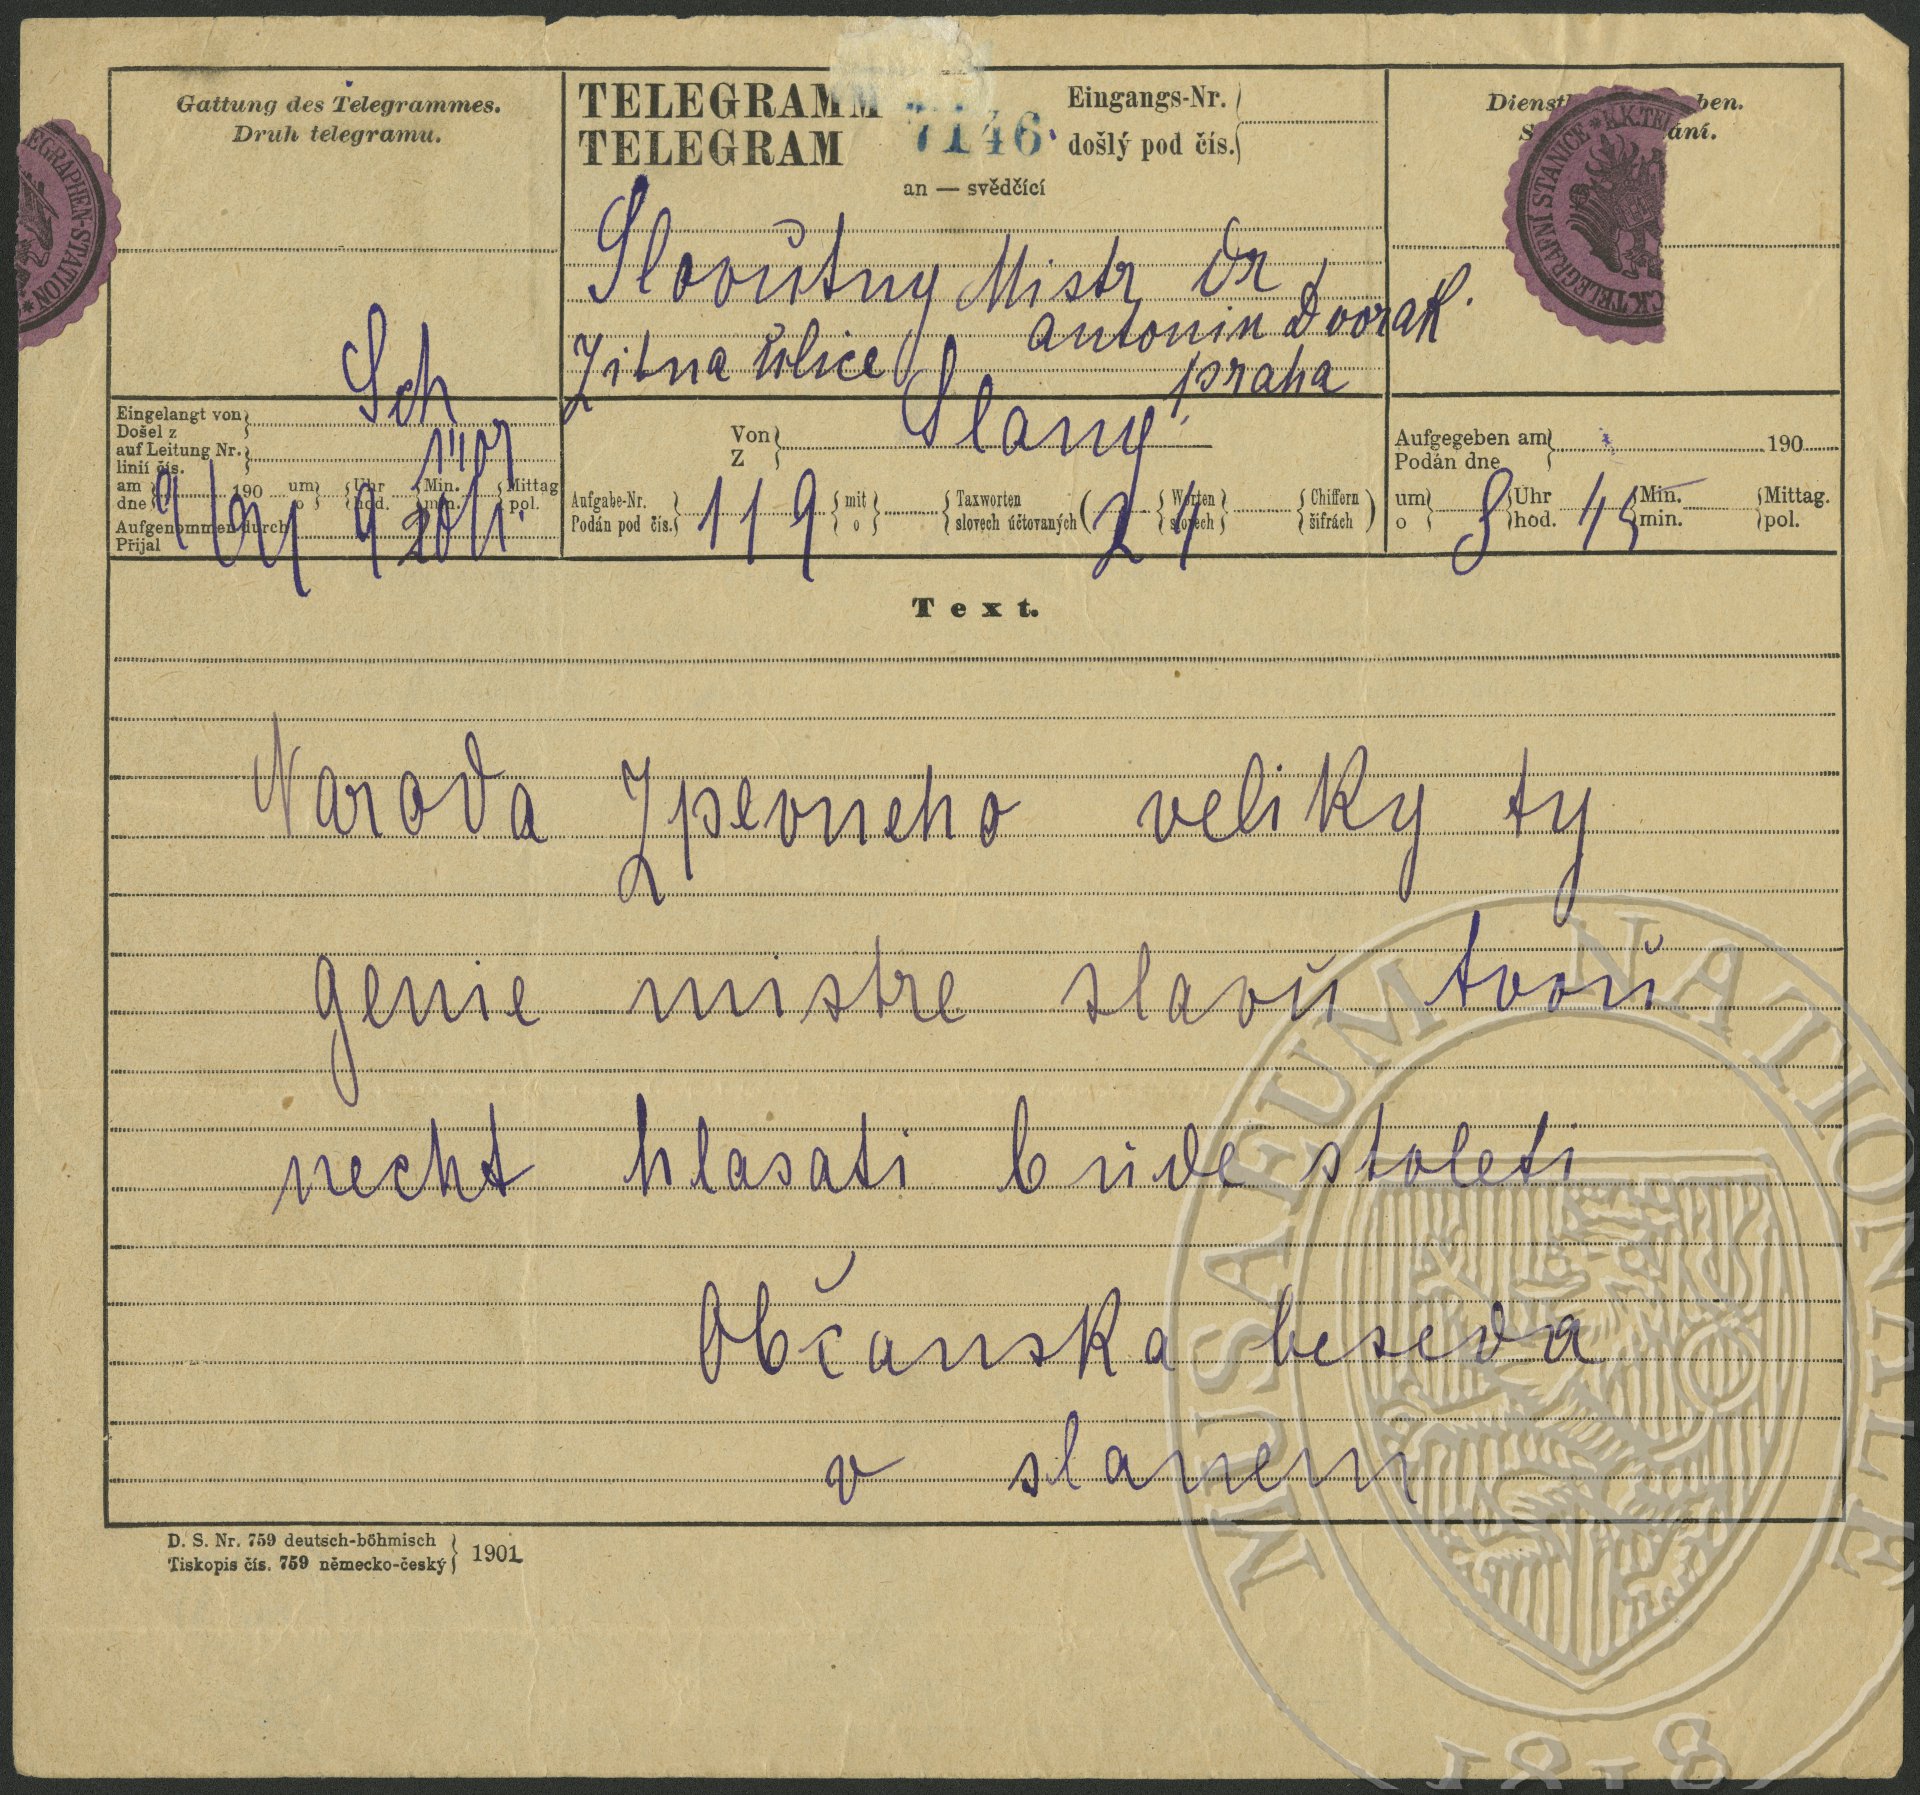 Gattung des Telegrammes.
Druh telegramu.
TELEGRAMM
TELEGRAM
7146
Eingangs-Nr.
došlý pod čís.
an — svědčící
Slovutny Mistr Dr
antonin Dvorak
Zitna ulice
praha
EGRAPHEN-STATION
TELEGRAFNÍ STANICE * K.K. TEL
C.K. TELEGRAFNÍ
Eingelangt von
Došel z
Sch
auf Leitung Nr.
linií čís.
am
dne
190
um
o
Uhr
hod.
Min.
min.
Mittag
pol.
9 20
Aufgenommen durch
Přijal
Von
Z
Slany
Aufgabe-Nr.
Podán pod čís.
119
mit
o
Taxworten
slovech účtovaných
Worten
slovech
Chiffern
šifrách
Aufgegeben am
Podán dne
190
um
o
8
Uhr
hod.
45
Min.
min.
Mittag.
pol.
Text.
Naroda Zpevneho veliky ty
genie mistre slavů tvoů
necht hlasati bude stoleti
Občanska beseda
v slanem
D. S. Nr. 759 deutsch-böhmisch
Tiskopis čís. 759 německo-český
1901
MUSAEUM NATIONALE
1818